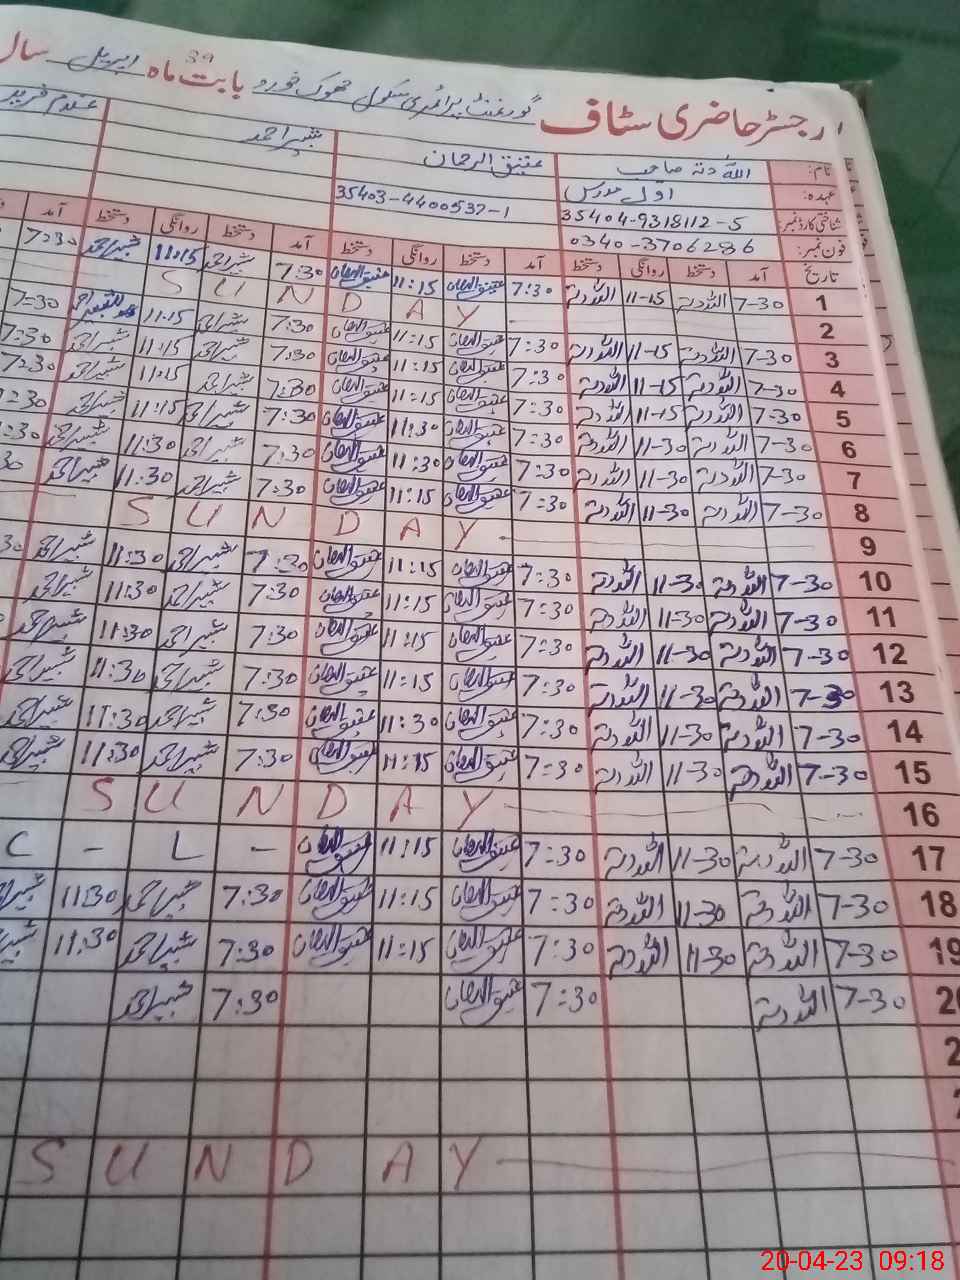 رجسٹر حاضری سٹاف گورنمنٹ پرائمری سکول جھوک خورد بابت ماہ اپریل سال
39
نام: اللہ دتہ صاحب عتیق الرحمان شبیر احمد
عہدہ: اول مدرس
شناختی کارڈ نمبر: 35404-9318112-5 35403-4400537-1
فون نمبر: 0340-3706286
تاریخ آمد دستخط روانگی دستخط آمد دستخط روانگی دستخط آمد دستخط روانگی دستخط آمد
1 7-30 اللہ دتہ 11-15 اللہ دتہ 7:30 عتیق الرحمان 11:15 عتیق الرحمان 7:30 شبیر احمد 11:15 شبیر احمد 7:30
2 SUNDAY
3 7-30 اللہ دتہ 11-15 اللہ دتہ 7:30 عتیق الرحمان 11:15 عتیق الرحمان 7:30 شبیر احمد 11:15 7:30
4 7-30 اللہ دتہ 11-15 اللہ دتہ 7:30 عتیق الرحمان 11:15 عتیق الرحمان 7:30 شبیر احمد 11:15 شبیر احمد 7:30
5 7-30 اللہ دتہ 11-15 اللہ دتہ 7:30 عتیق الرحمان 11:15 عتیق الرحمان 7:30 شبیر احمد 11:15 شبیر احمد 7:30
6 7-30 اللہ دتہ 11-30 اللہ دتہ 7:30 عتیق الرحمان 11:30 عتیق الرحمان 7:30 شبیر احمد 11:15 شبیر احمد 7:30
7 7-30 اللہ دتہ 11-30 اللہ دتہ 7:30 عتیق الرحمان 11:30 عتیق الرحمان 7:30 شبیر احمد 11:30 شبیر احمد :30
8 7-30 اللہ دتہ 11-30 اللہ دتہ 7:30 عتیق الرحمان 11:15 عتیق الرحمان 7:30 شبیر احمد 11:30 شبیر احمد 30
9 SUNDAY
10 7-30 اللہ دتہ 11-30 اللہ دتہ 7:30 عتیق الرحمان 11:15 عتیق الرحمان 7:30 شبیر احمد 11:30 شبیر احمد 30
11 7-30 اللہ دتہ 11-30 اللہ دتہ 7:30 عتیق الرحمان 11:15 عتیق الرحمان 7:30 شبیر احمد 11:30 شبیر احمد
12 7-30 اللہ دتہ 11-30 اللہ دتہ 7:30 عتیق الرحمان 11:15 عتیق الرحمان 7:30 شبیر احمد 11:30 شبیر احمد
13 7-30 اللہ دتہ 11-30 اللہ دتہ 7:30 عتیق الرحمان 11:15 عتیق الرحمان 7:30 شبیر احمد 11:30 شبیر احمد
14 7-30 اللہ دتہ 11-30 اللہ دتہ 7:30 عتیق الرحمان 11:30 عتیق الرحمان 7:30 شبیر احمد 11:30 شبیر احمد
15 7-30 اللہ دتہ 11-30 اللہ دتہ 7:30 عتیق الرحمان 11:15 عتیق الرحمان 7:30 شبیر احمد 11:30 شبیر احمد
16 SUNDAY
17 7-30 اللہ دتہ 11-30 اللہ دتہ 7:30 عتیق الرحمان 11:15 عتیق الرحمان C - L -
18 7-30 اللہ دتہ 11-30 اللہ دتہ 7:30 عتیق الرحمان 11:15 عتیق الرحمان 7:30 شبیر احمد 11:30 شبیر
19 7-30 اللہ دتہ 11-30 اللہ دتہ 7:30 عتیق الرحمان 11:15 عتیق الرحمان 7:30 شبیر احمد 11:30 شبیر
20 7-30 اللہ دتہ 7:30 عتیق الرحمان 7:30 شبیر احمد
2
SUNDAY
20-04-23 09:18